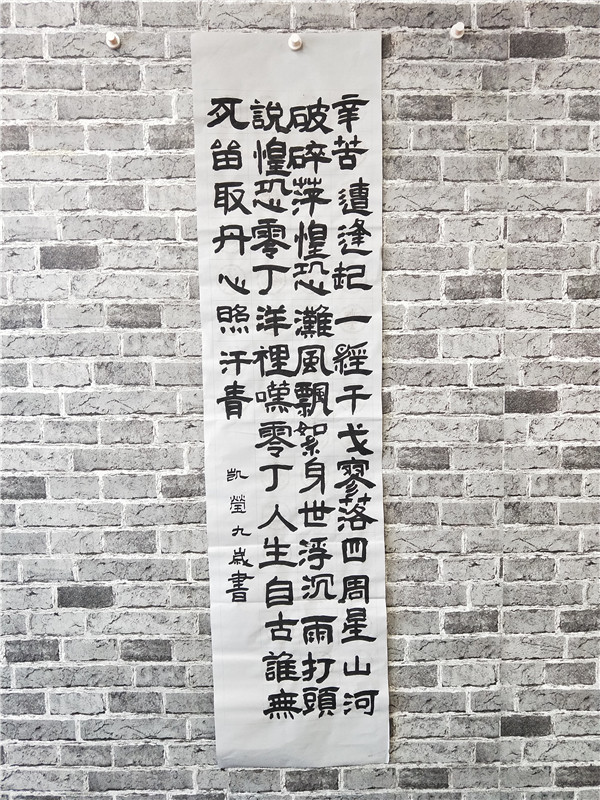 辛苦遭逢起一經干戈寥落四周星山河
破碎萍惶恐灘風飄絮身世浮沉雨打頭
說惶恐零丁洋裡嘆零丁人生自古誰無
死留取丹心照汗青
凱瑩九歲書